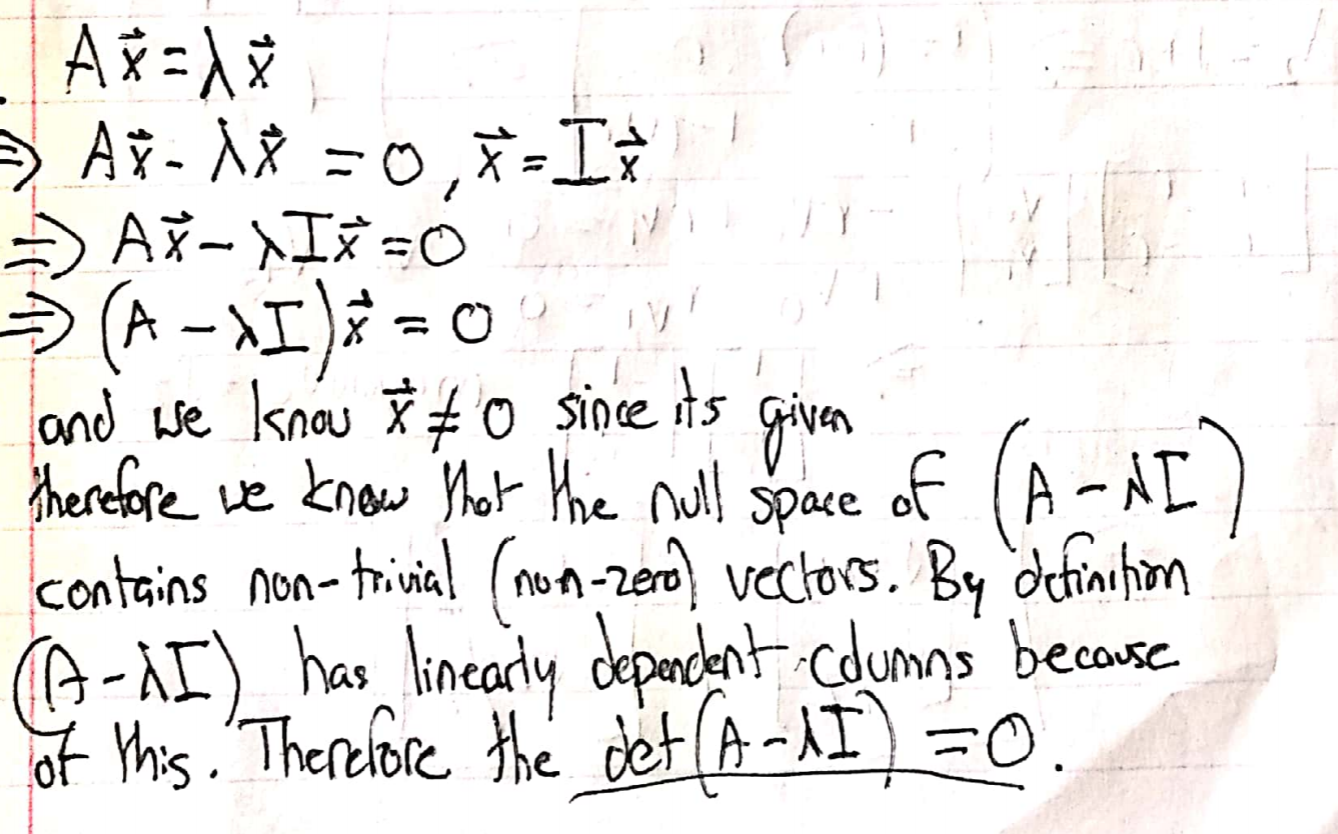 A x⃗ = λ x⃗
⇒ A x⃗ - λ x⃗ = 0, x⃗ = I x⃗
⇒ A x⃗ - λ I x⃗ = 0
⇒ (A - λ I) x⃗ = 0
and we know x⃗ ≠ 0 since its given
therefore we know that the null space of (A - λI)
contains non-trivial (non-zero) vectors. By definition
(A - λI) has linearly dependent columns because
of this. Therefore the det(A - λI) = 0.